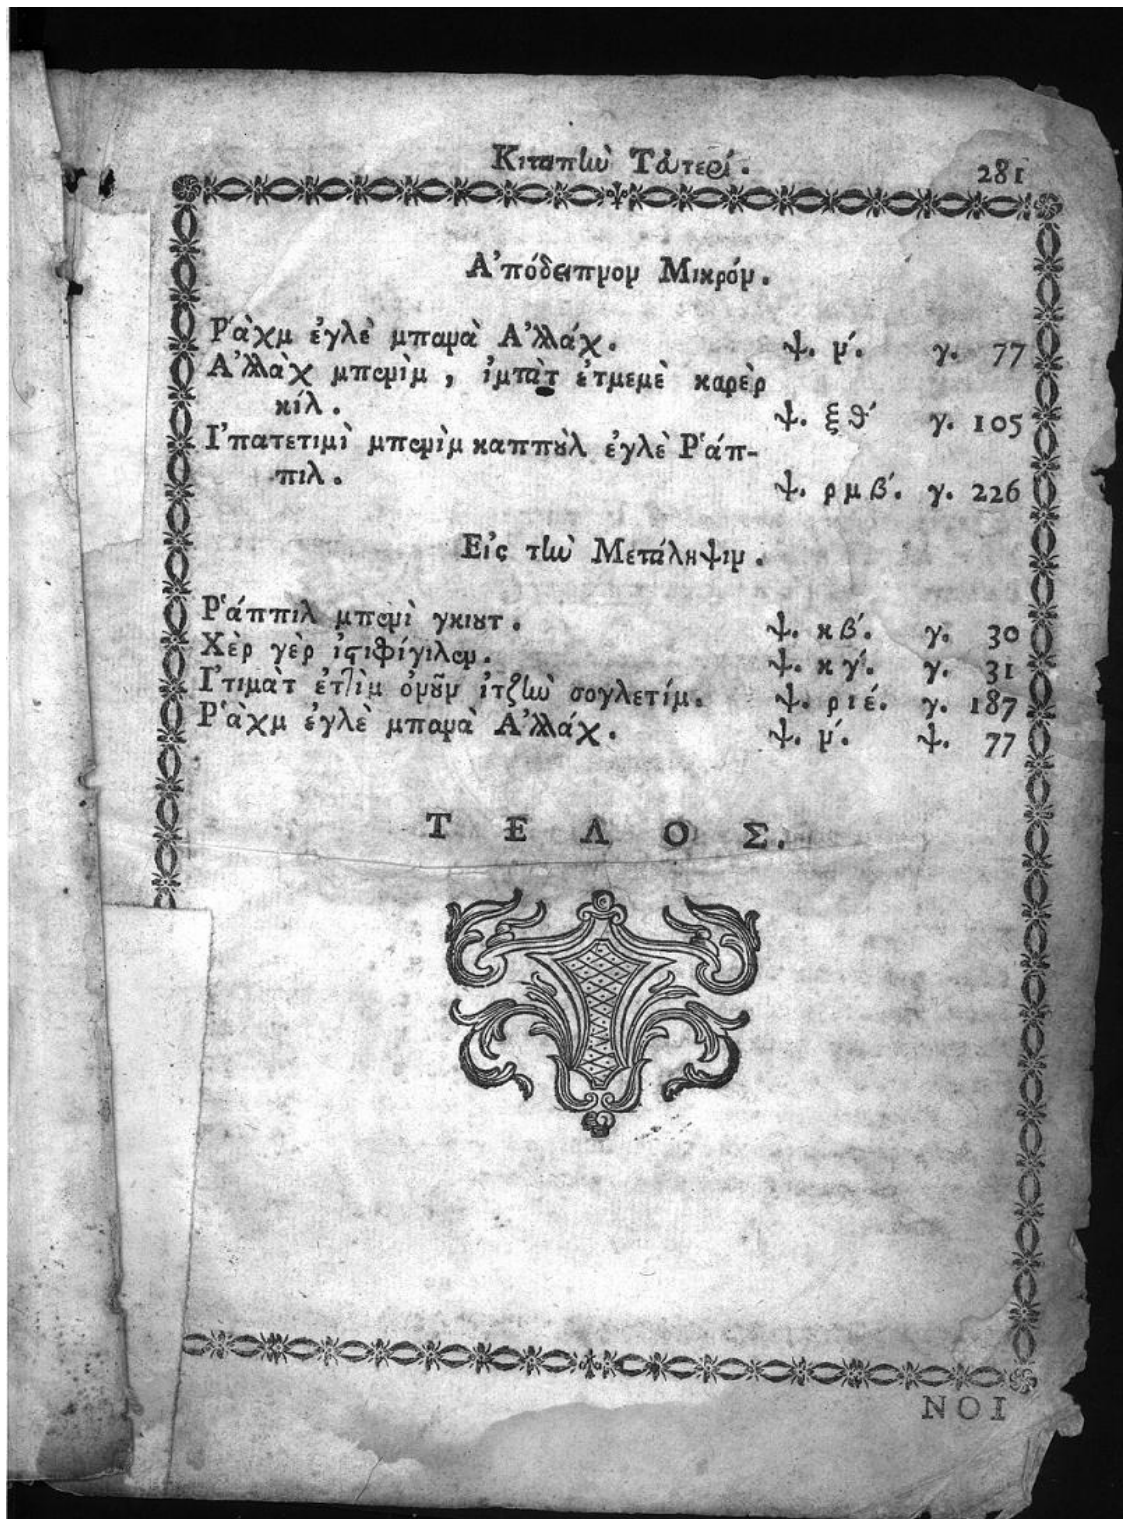 Κιταπὶν Τἀτερί. 281
Ἀπόδειπνον Μικρόν.
Ῥάχμ ἐγλὲ μπανὰ Ἀλλάχ. ψ. ν΄. γ. 77
Ἀλλὰχ μπενὶμ, ἰμτὰτ ἐτμεμὲ καρὲρ
κίλ. ψ. ξθ΄ γ. 105
Ἰπατετιμὶ μπενὶμ καππȣ̀λ ἐγλὲ Ῥάπ-
πιλ. ψ. ρμβ΄. γ. 226
Εἰς τὴν Μετάληψιν.
Ῥάππιλ μπενὶ γκιȣτ. ψ. κβ΄. γ. 30
Χὲρ γὲρ ἰστιφίγιλεν. ψ. κγ΄. γ. 31
Ἰτιματ ἐττὶμ ὀνȣ͂ν ἰτζὴν σογλετίμ. ψ. ριέ. γ. 187
Ῥὰχμ ἐγλὲ μπανὰ Ἀλλάχ. ψ. ν΄. ψ. 77
ΤΕΛΟΣ.
ΝΟΙ